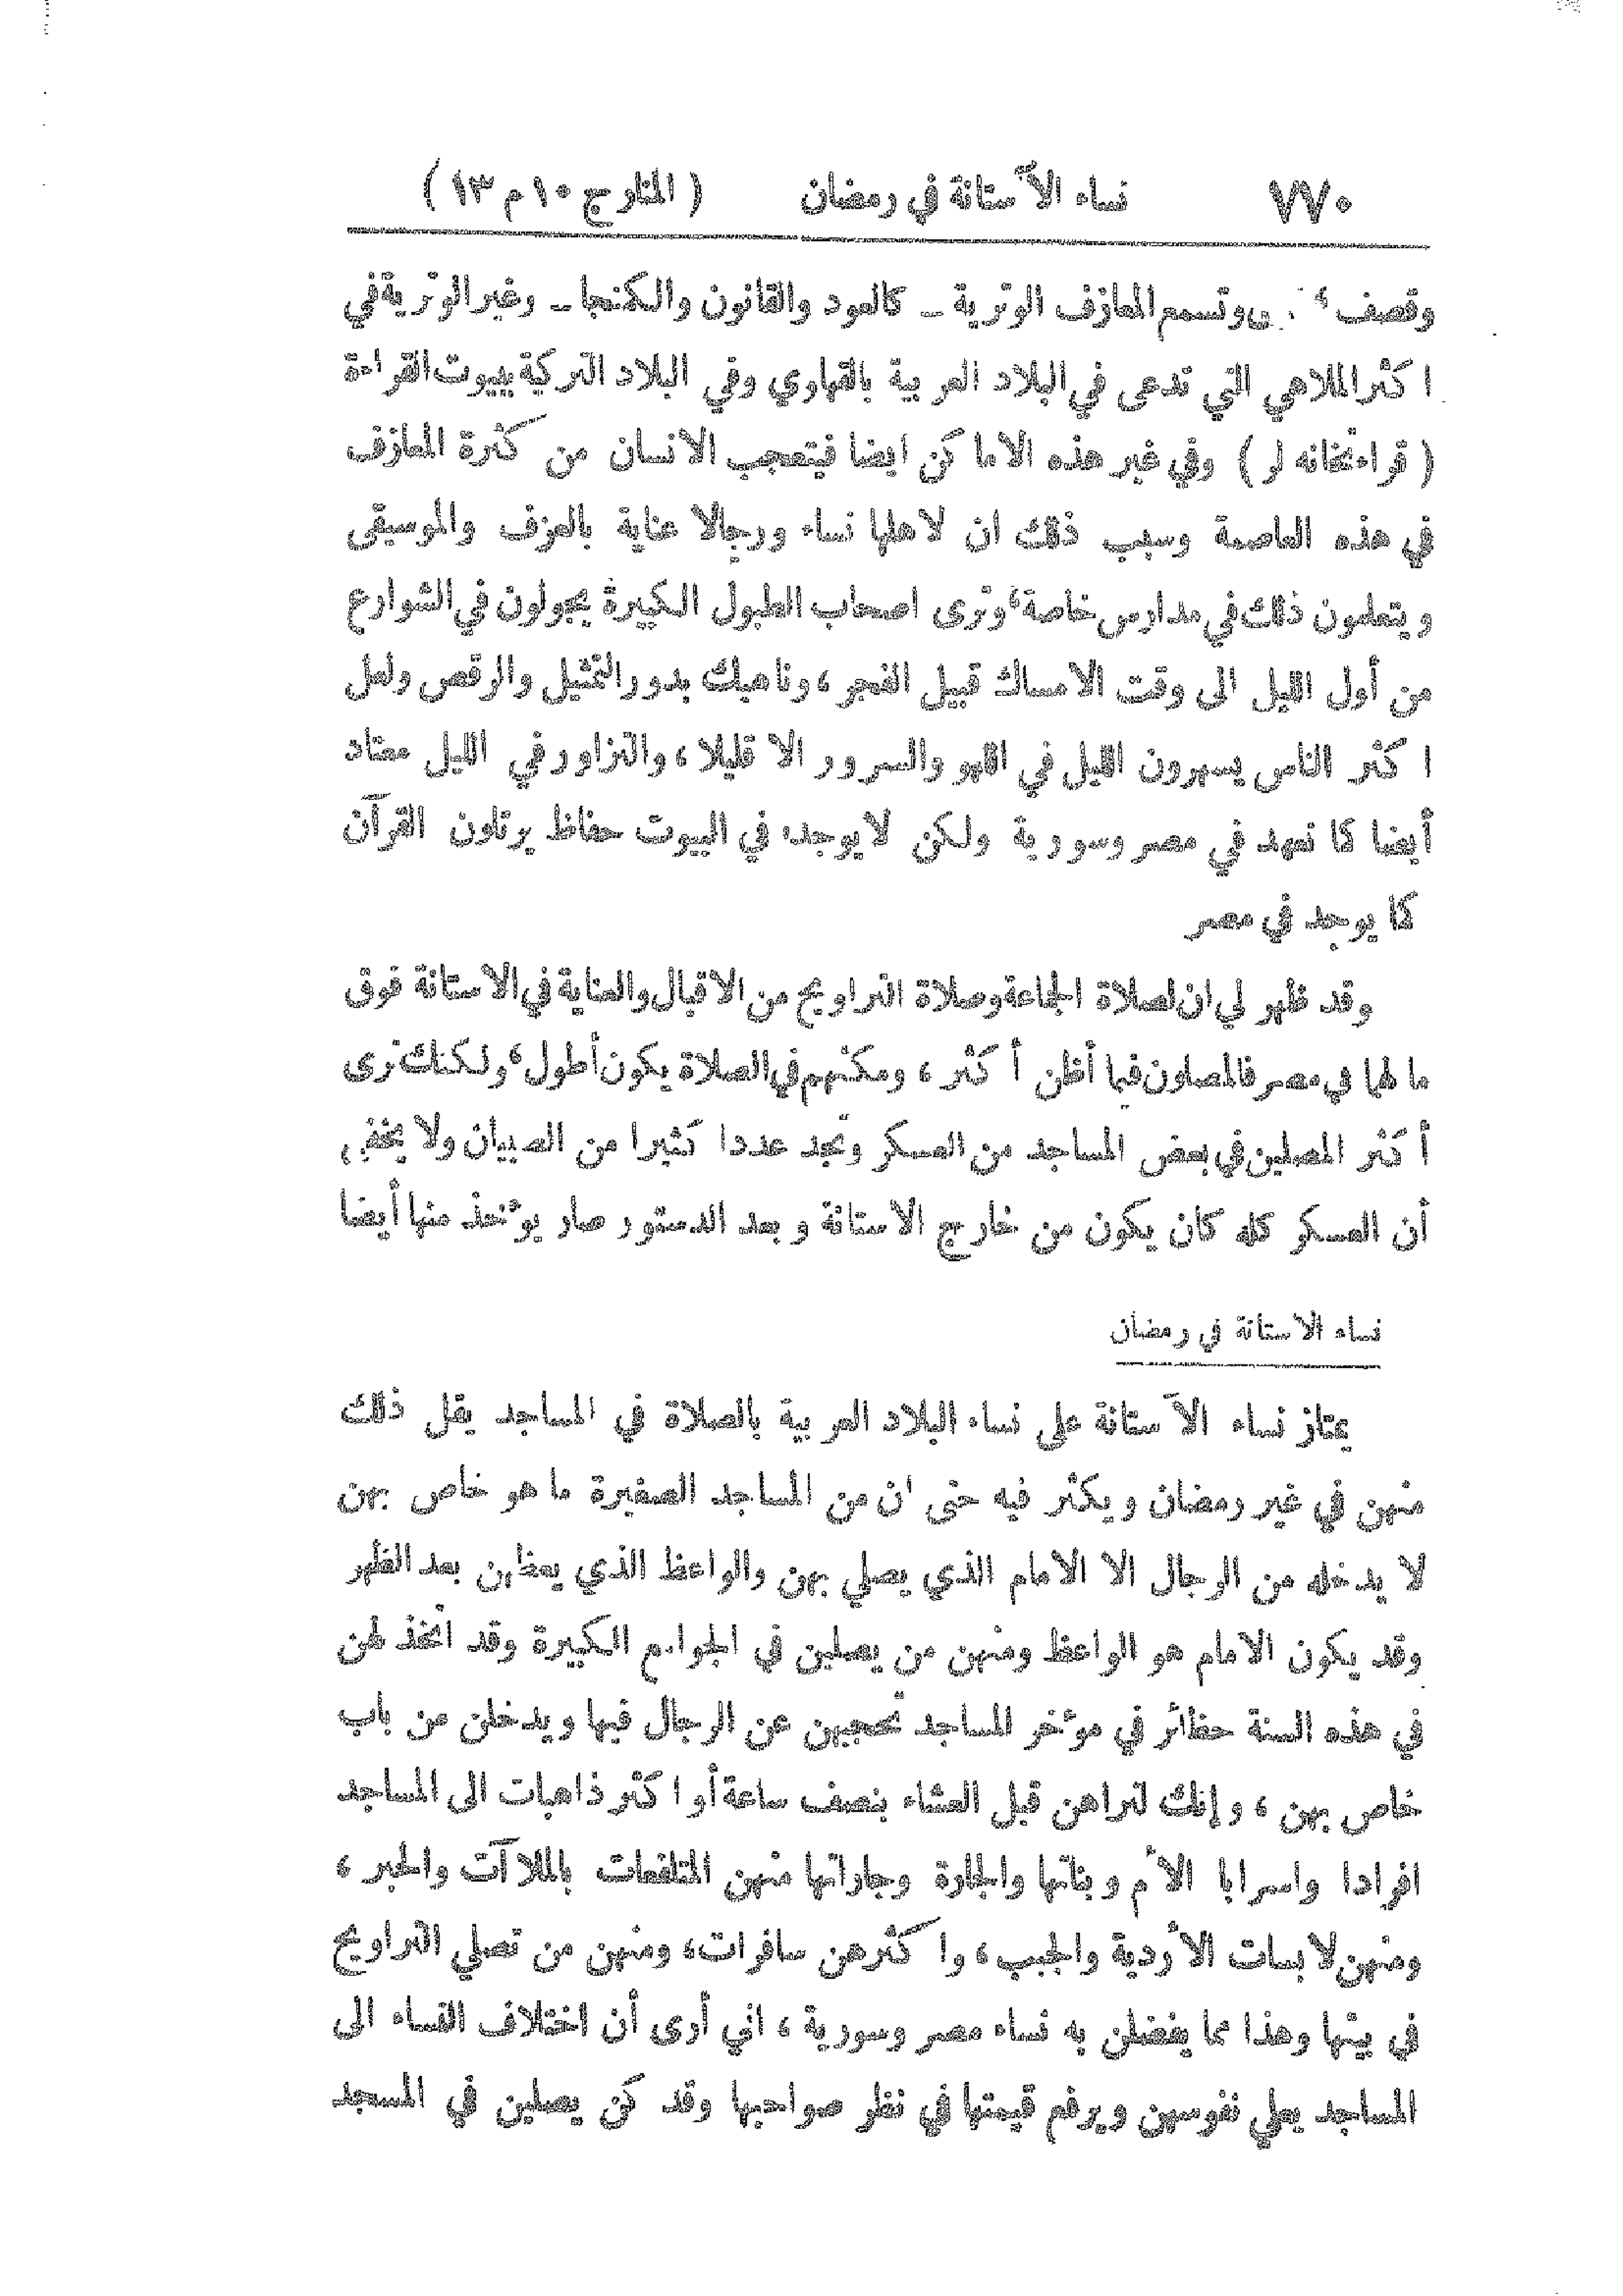 ٧٧٠ نساء الآستانة في رمضان ( المنار ج ١٠ م ١٣ )
وقصف، وتسمع المعازف الوترية ــ كالعود والقانون والكنجا ــ وغير الوترية في
اكثر الملاهي التي تدعى في البلاد العربية بالقهاوي وفي البلاد التركية ببيوت القراءة
( قراءتخانه لر ) وفي غير هذه الاماكن ايضا فيتعجب الانسان من كثرة المعازف
في هذه العاصمة وسبب ذلك ان لاهلها نساء ورجالا عناية بالعزف والموسيقى
ويتعلمون ذلك في مدارس خاصة، وترى اصحاب الطبول الكبيرة يجولون في الشوارع
من أول الليل الى وقت الامساك قبيل الفجر، وناهيك بدور التمثيل والرقص ولعل
اكثر الناس يسهرون الليل في اللهو والسرور الا قليلا، والتزاور في الليل معتاد
أيضا كما نعهد في مصر وسورية ولكن لا يوجد في البيوت حفاظ يرتلون القرآن
كما يوجد في مصر
وقد ظهر لي ان لصلاة الجماعة وصلاة التراويح من الاقبال والعناية في الاستانة فوق
ما لهما في مصر فالمصلون فيما أظن أكثر، ومكثهم في الصلاة يكون أطول، ولكنك ترى
أكثر المصلين في بعض المساجد من العسكر وتجد عددا كثيرا من الصبيان ولا يخفى
أن العسكر كله كان يكون من خارج الاستانة وبعد الدستور صار يؤخذ منها أيضا
نساء الاستانة في رمضان
يمتاز نساء الآستانة على نساء البلاد العربية بالصلاة في المساجد يقل ذلك
منهن في غير رمضان ويكثر فيه حتى ان من المساجد الصغيرة ما هو خاص بهن
لا يدخله من الرجال الا الامام الذي يصلي بهن والواعظ الذي يعظهن بعد الظهر
وقد يكون الامام هو الواعظ ومنهن من يصلين في الجوامع الكبيرة وقد اتخذ لهن
في هذه السنة حظائر في مؤخر المساجد تحجبهن عن الرجال فيها ويدخلن من باب
خاص بهن، وإنك لتراهن قبل العشاء بنصف ساعة أو اكثر ذاهبات الى المساجد
افرادا واسرابا الأم وبناتها والجارة وجاراتها منهن المتلفعات بالملاآت والحبر،
ومنهن لابسات الأردية والجبب، واكثرهن سافرات، ومنهن من تصلي التراويح
في بيتها وهذا مما يفضلن به نساء مصر وسورية، اني أرى أن اختلاف النساء الى
المساجد يعلي نفوسهن ويرفع قيمتها في نظر صواحبها وقد كن يصلين في المسجد